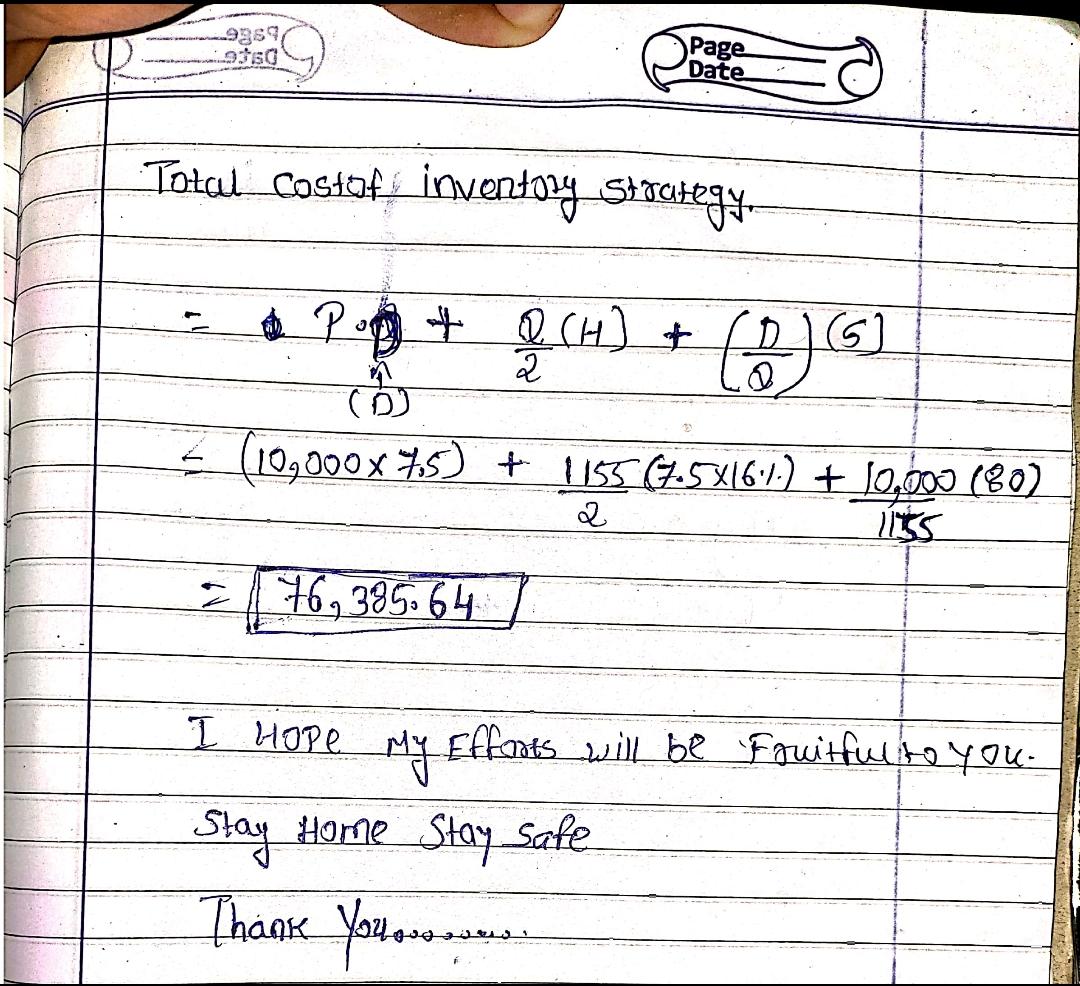 Page
Date
Page
Date
Total Cost of inventory strategy.
= P.D + Q/2 (H) + (D/Q) (S)
(D)
= (10,000 x 7.5) + 1155/2 (7.5x16%) + 10,000/1155 (80)
= 76,385.64
I HOPE My Efforts will be Fruitful to you.
Stay Home Stay safe
Thank You.........